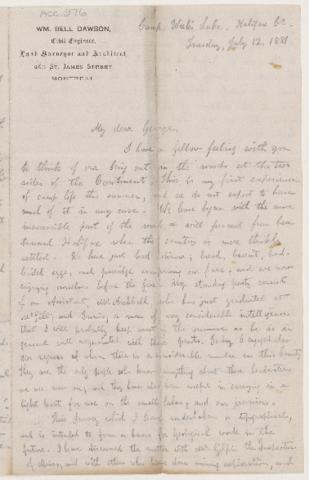 ACC 976
WM. BELL DAWSON,
Civil Engineer,
Land Surveyor and Architect,
ST. JAMES STREET
MONTREAL.
Camp, Lake, Halifax Co.
Tuesday, July 12, 1881
My dear George,
I have a fellow feeling with you
to think of our being out in the woods at the two
sides of the Continent. This is my first experience
of camp life this summer, and we do not expect to have
much of it in any case. We have begun with the more
inaccessible part of the work and will proceed from here
toward Halifax where the country is more thickly
settled. We have just had dinner; bread, biscuit, hard-
boiled eggs, and porridge comprising our fare; and we are now
enjoying ourselves before the fire. My standing party consists
of an Assistant, who has just graduated at
McGill, and a man of very considerable intelligence
that I will probably keep most of the summer as he is in
general well acquainted with these parts. Today
of whom there is a considerable number in this county
they are the only people who know anything about these backwaters
we are now on; and they have also been useful in carrying in a
light boat for use on the small lakes, and our provisions.
This Survey which I have undertaken is topographical,
and is intended to form a basis for geological work in the
future. I have discussed the matter with Mr. Gilpin the Inspector
of Mines, and with others who have done mining exploration, and